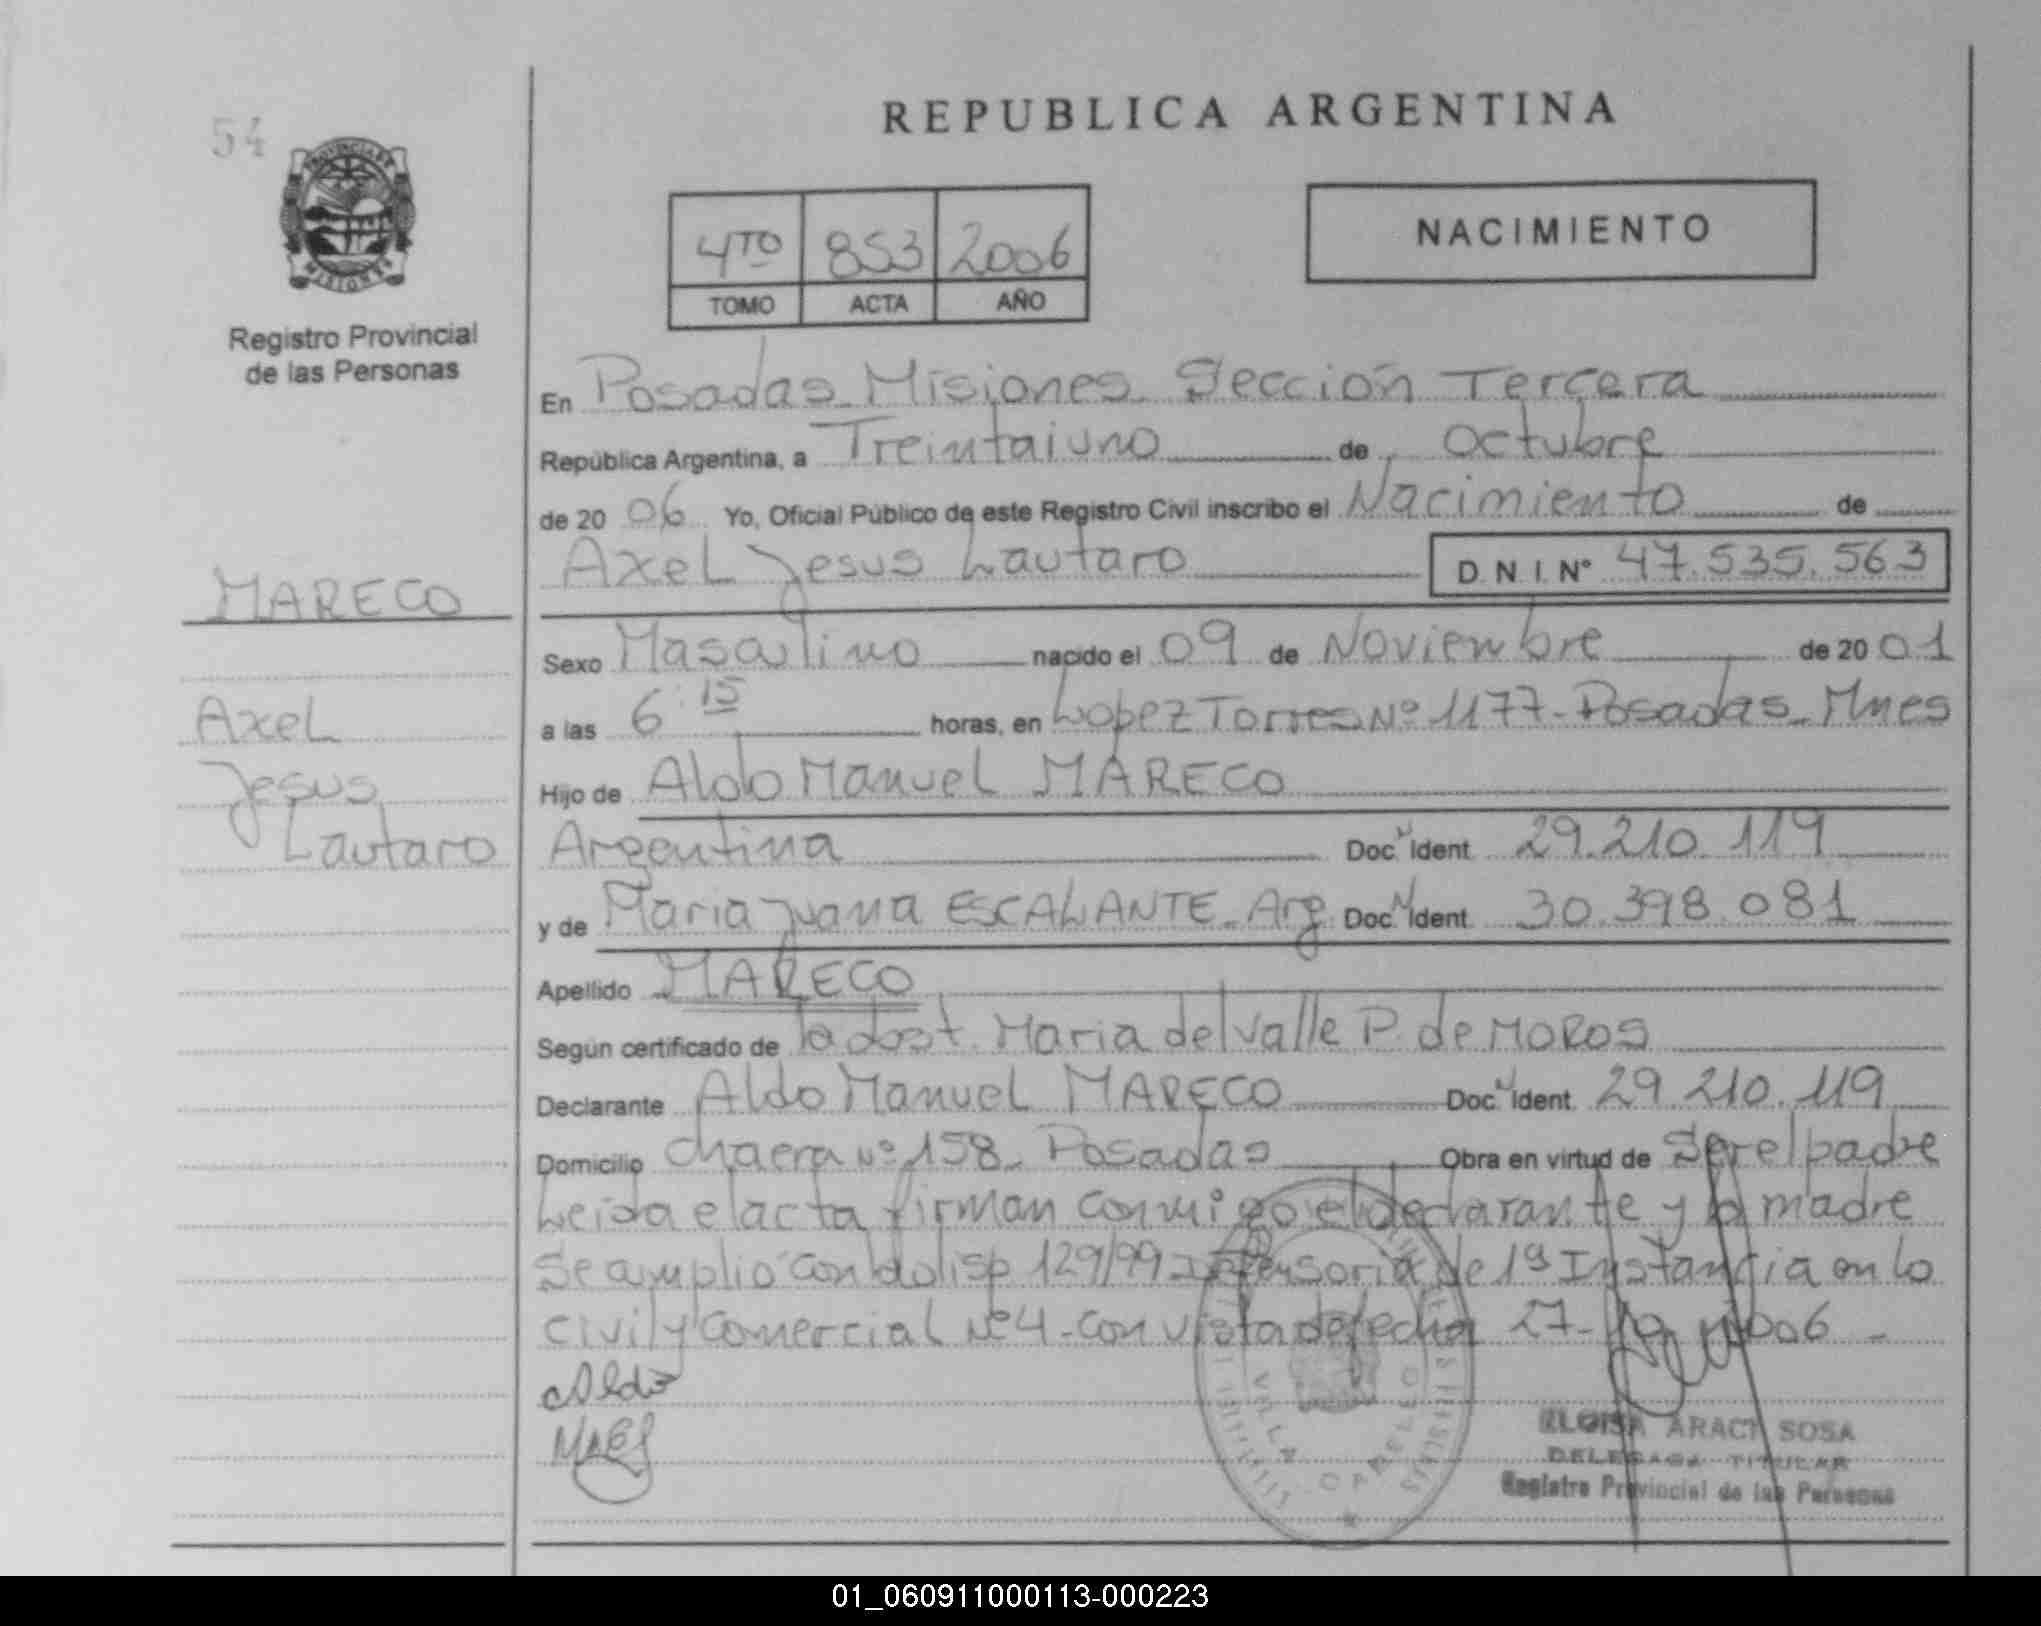 54
REPUBLICA ARGENTINA
4TO 853 2006
TOMO ACTA AÑO
NACIMIENTO
Registro Provincial
de las Personas
En Posadas Misiones Sección Tercera
República Argentina, a Treintaiuno de Octubre
de 20 06 Yo, Oficial Público de este Registro Civil inscribo el Nacimiento de
Axel Jesus Lautaro D.N.I.Nº 47.535.563
MARECO
Axel
Jesus
Lautaro
Sexo Masculino nacido el 09 de Noviembre de 20 01
a las 6:15 horas, en Lopez Torres Nº 1177-Posadas-Mnes
Hijo de Aldo Manuel MARECO
Argentina Doc. Ident. 29.210.119
y de Maria Juana ESCALANTE-Arg. Doc. Ident. 30.398.081
Apellido MARECO
Según certificado de la Maria del Valle P. de MOROS
Declarante Aldo Manuel MARECO Doc. Ident. 29.210.119
Domicilio chacra nº 158- Posadas Obra en virtud de Ser el padre
Leida el acta firman conmigo el declarante y la madre
Se amplio con disp 129/99 Defensoria de 1ª Instancia en lo
Civil y Comercial Nº 4-con vista de fecha 27-10-2006-
Aldo
VILLA CABELLO
ELOISA ARACI SOSA
DELEGADA TITULAR
Registro Provincial de las Personas
01_060911000113-000223